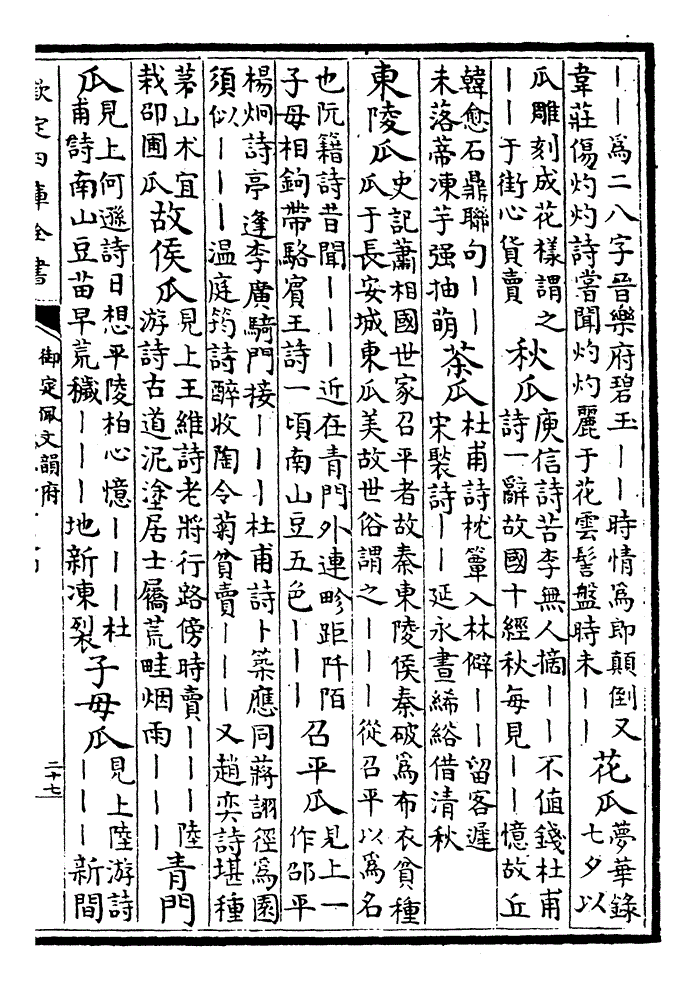 ｜｜為二八字晉樂府碧玉｜｜時情為郎顛倒又
韋莊傷灼灼詩嘗聞灼灼麗于花雲髻盤時未｜｜
花瓜
夢華錄
七夕以
瓜雕刻成花樣謂之
｜｜于街心貨賣
秋瓜
庾信詩苦李無人摘｜｜不值錢杜甫
詩一辭故國十經秋每見｜｜憶故丘
韓愈石鼎聯句｜｜
未落蒂凍芋强抽萌
茶瓜
杜甫詩枕簟入林僻｜｜留客遲
宋褧詩｜｜延永晝絺綌借清秋
東陵瓜
史記蕭相國世家召平者故秦東陵侯秦破為布衣貧種
瓜于長安城東瓜美故世俗謂之｜｜｜從召平以為名
也阮籍詩昔聞｜｜｜近在青門外連畛距阡陌
子母相鉤帶駱賓王詩一頃南山豆五色｜｜｜
召平瓜
見上一
作邵平
楊炯詩亭逢李廣騎門接｜｜｜杜甫詩卜築應同蔣詡徑為園
須似｜｜｜温庭筠詩醉收陶令菊貧賣｜｜｜又趙奕詩堪種
茅山朮宜
栽邵圃瓜
故侯瓜
見上王維詩老將行路傍時賣｜｜｜陸
游詩古道泥塗居士屩荒畦烟雨｜｜｜
青門
瓜
見上何遜詩日想平陵柏心憶｜｜｜杜
甫詩南山豆苗早荒穢｜｜｜地新凍裂
子母瓜
見上陸游詩
｜｜｜新間
欽定四庫全書
御定佩文韻府
二十七